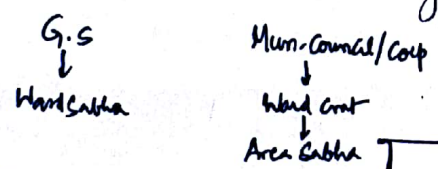 G.S
Ward Sabha
Mun. Council/Corp
Ward Cmt
Area Sabha